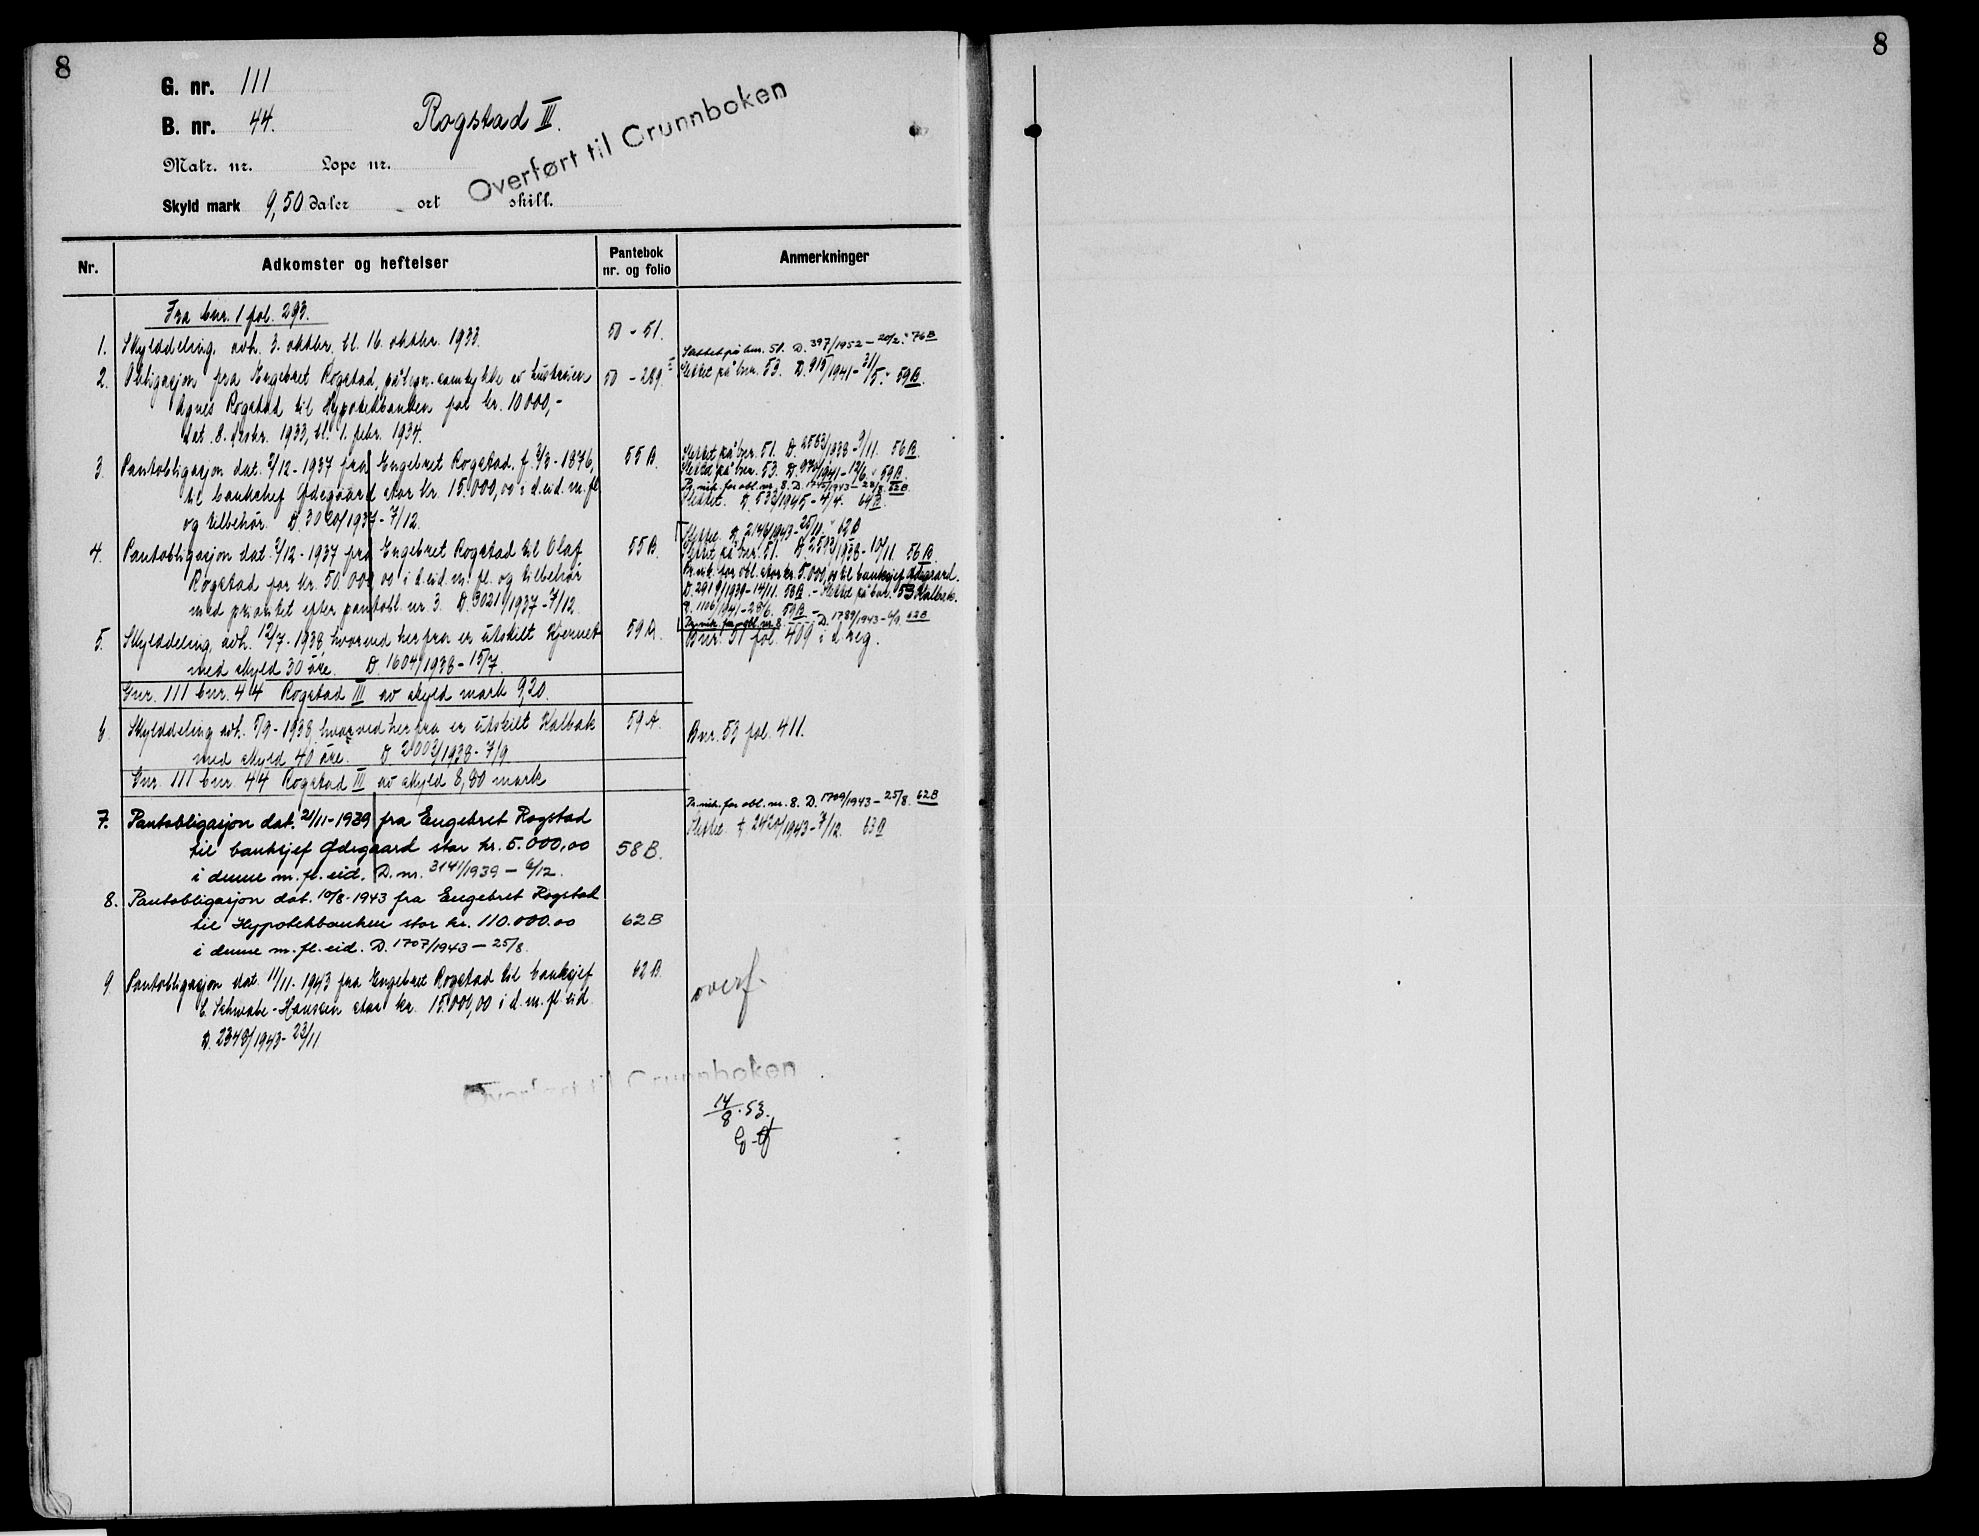 8
8
G. nr. 111
B. nr. 44.
Rogstad III.
Overført til Grunnboken
Matr. nr. Lope nr.
Skyld mark 9,50 daler ort skill.
Nr. Adkomster og heftelser Pantebok nr. og folio Anmerkninger
Fra bnr. 1 fol. 293.
1. Skylddeling, avh. 3. oktbr. tl. 16. oktbr. 1933. 50 - 51.
Slettet på bnr. 51. D. 397/1952 - 20/2. 76B
2. Obligasjon fra Engebret Rogstad, påtegn. samtykke av hustruen 50 - 289
Slettet på bnr. 53. D. 915/1941 - 31/5. 59B.
Agnes Rogstad til Hypotekbanken for kr. 10000,-
dat. 8. desbr. 1933, tl. 1. febr. 1934.
3. Pantobligasjon dat. 2/12 - 1937 fra Engebret Rogstad, f. 3/3 - 1876, 55B.
til bankchef Ødegaard stor kr. 15.000,00 i d. eid. m. fl
og tilbehör. D. 3020/1937 - 7/12.
Slettet på bnr. 51. D. 2583/1938 - 9/11. 56B.
Slettet på bnr. 53. D. 970/1941 - 12/6. 59B.
Pr. vik. for obl. nr. 8. D. 1745/1943 - 28/8. 62B.
Slettet. D. 532/1945 - 4/4. 64B.
4. Pantobligasjon dat. 2/12 - 1937 fra Engebret Rogstad til Olaf 55B.
Rogstad for kr. 50.000,00 i d. eid. m. fl. og tilbehör
med prioritet efter pantobl. nr 3. D. 3021/1937 - 7/12.
Slettet. D. 2146/1943 - 25/11. 62B
Slettet på bnr. 51. D. 2593/1938 - 10/11. 56B.
Pr. vik. for obl. stor kr. 5.000,00 til banksjef Ødegaard.
D. 2919/1939 - 14/11. 58B. - Slettet på bnr. 53 Kalbak.
D. 1106/1941 - 28/6. 59B.
Pr. vik. for obl. nr. 8. - D. 1789/1943 - 6/9. 62B
5. Skylddeling, avh. 12/7 - 1938, hvorved herfra er utskilt Hjernet 59A.
Bnr. 51 fol. 409 i d. reg.
med skyld 30 öre. D. 1604/1938 - 15/7.
Gnr. 111 bnr. 44 Rogstad III av skyld mark 9,20.
6. Skylddeling avh. 5/9 - 1938, hvorved herfra er utskilt Kalbak 59A.
Bnr. 53 fol. 411.
med skyld 40 öre. D. 2002/1938 - 7/9
Gnr. 111 bnr. 44 Rogstad III av skyld 8,80 mark
7. Pantobligasjon dat. 21/11 - 1939 fra Engebret Rogstad
til banksjef Ødegaard stor kr. 5.000,00 58B.
i denne m. fl. eid. D. nr. 3141/1939 - 6/12.
Pr. vik. for obl. nr. 8. D. 1709/1943 - 25/8. 62B
Slettet D. 2420/1943 - 7/12. 63B
8. Pantobligasjon dat. 10/8 - 1943 fra Engebret Rogstad
til Hypotekbanken stor kr. 110.000.00 62B
i denne m. fl. eid. D. 1707/1943 - 25/8.
9 Pantobligasjon dat. 11/11 - 1943 fra Engebret Rogstad til banksjef 62B.
C. Schwabe - Hansen stor kr. 15.000,00 i d. m. fl. eid.
D. 2348/1943 - 23/11
overf.
Overført til Grunnboken
14/8. 53.